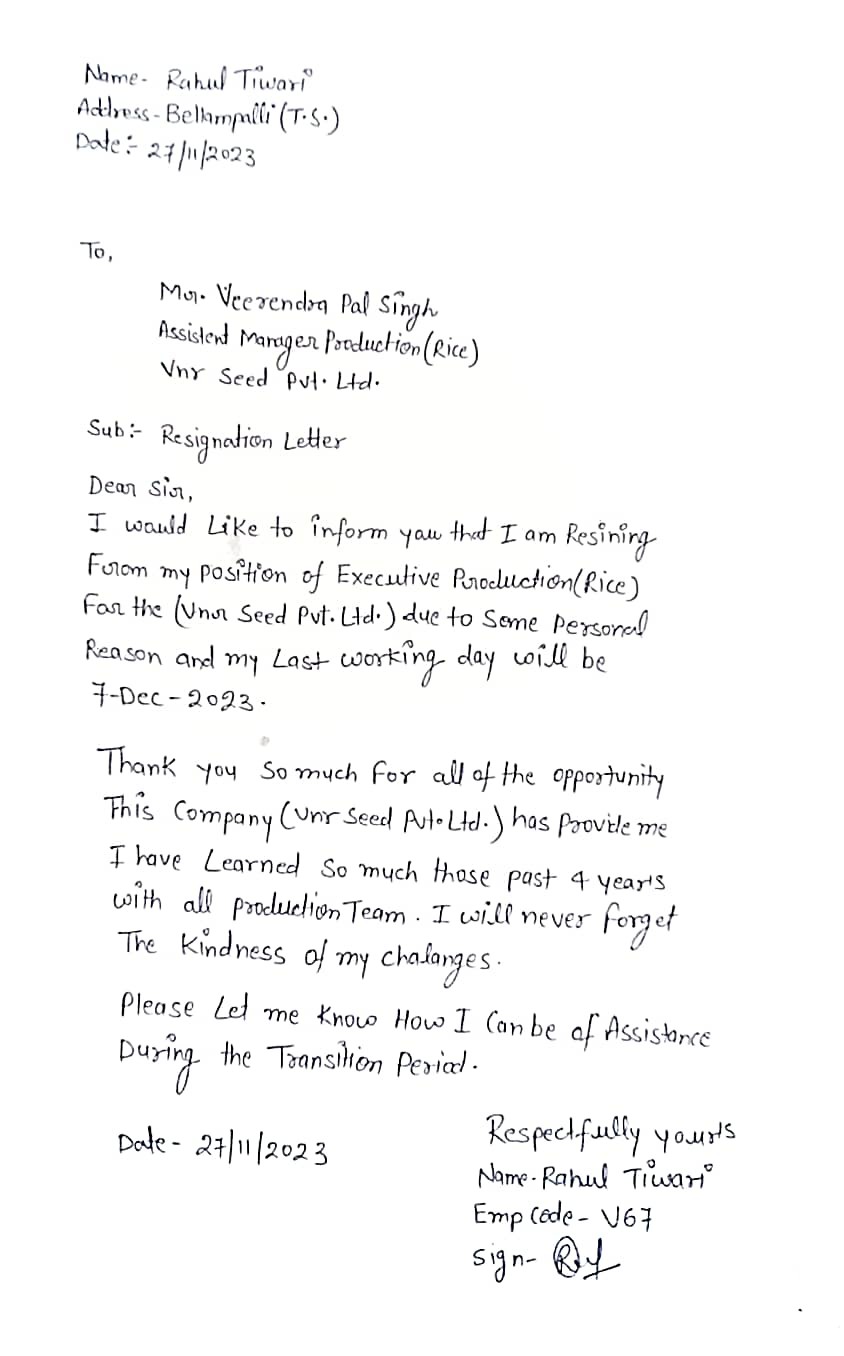 Name- Rahul Tiwari
Address-Bellampalli (T.S.)
Date:- 27/11/2023
To,
Mr. Veerendra Pal Singh
Assistent Manager Production (Rice)
Vnr Seed Pvt. Ltd.
Sub:- Resignation Letter
Dear Sir,
I would Like to inform you that I am Resining
From my position of Executive Production (Rice)
For the (Vnr Seed Pvt. Ltd.) due to Some Personal
Reason and my Last working day will be
7-Dec-2023.
Thank you So much for all of the opportunity
This Company (Vnr Seed Pvt. Ltd.) has Provide me
I have Learned So much those past 4 years
with all production Team. I will never forget
The Kindness of my chalanges.
Please Let me Know How I Can be of Assistance
During the Transition Period.
Date- 27/11/2023
Respectfully yours
Name-Rahul Tiwari
Emp Code- V67
Sign-